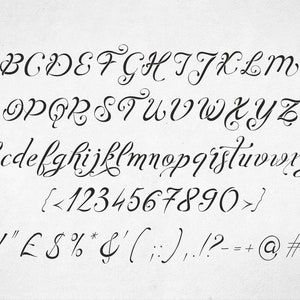 BCDEFGHIJKLM
OPQRSTUVWXYZ
cdefghijklmnopqrstuvwxy
{<1234567890>}
!"£$%*&'(;:),.!?-=+@#